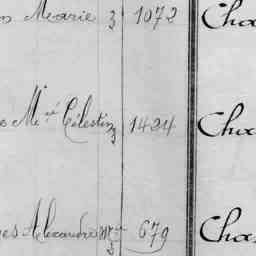 Marie 3 1072 Cha
Mié Célestin 3 1424 Cha
Alexandre 679 Cha